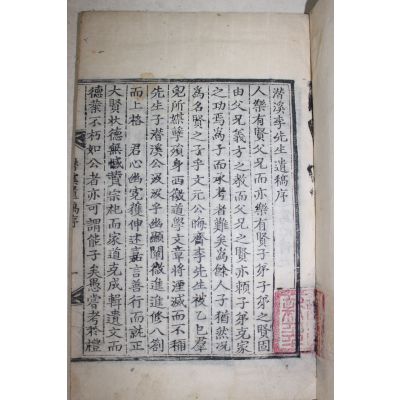 潛溪李先生遺稿序
人樂有賢父兄而亦樂有賢子弟子弟之賢固
由父兄義方之敎而父兄之賢亦賴子弟克家
之功焉爲子而承考者難矣爲餘人子猶然况
爲名賢之子乎文元公晦齋李先生被乙巳群
兇所媒孼殞身西徼道學文章將湮滅而不稱
先生子潛溪公汲汲乎幽顯闡微進進修八劄
而上格 君心幽寃獲伸述嘉言善行而就正
大賢狀德無憾贊宗祀而家道克成輯遺文而
德業不朽如公者亦可謂能子矣愚嘗考於禮